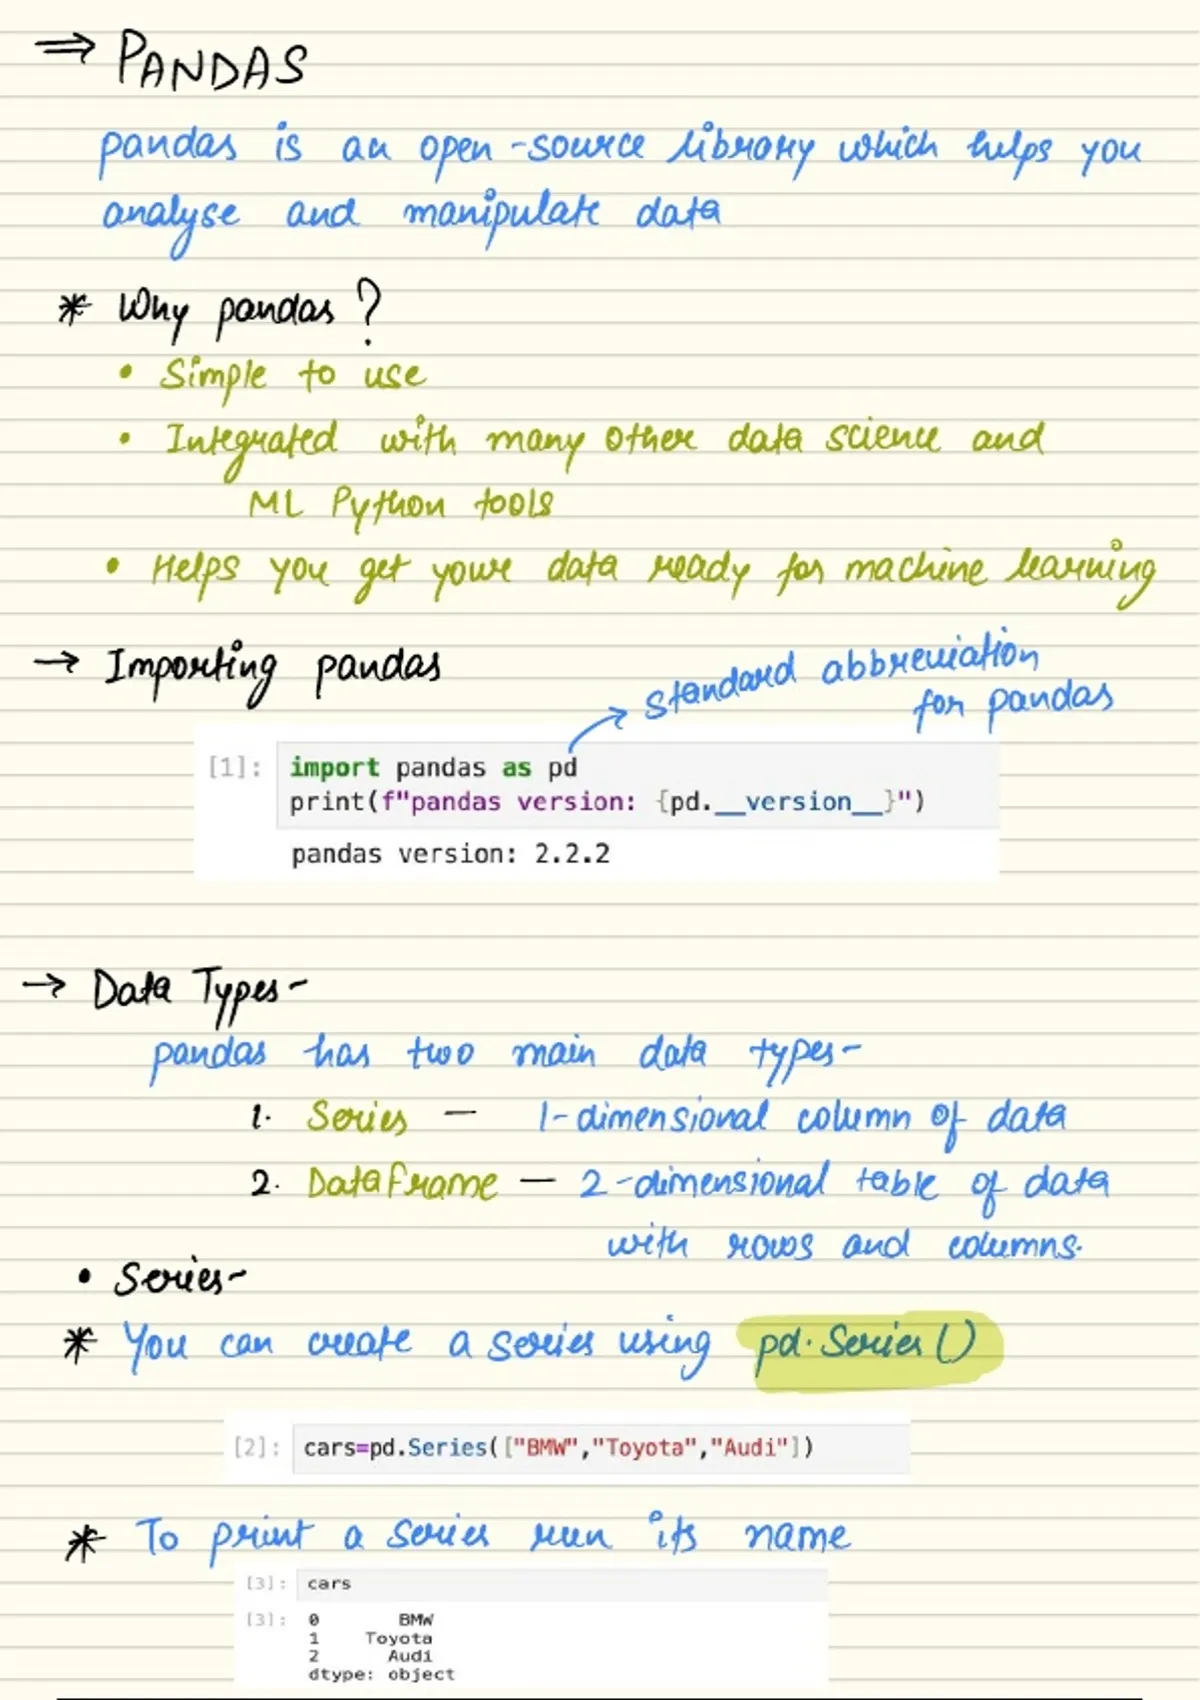 ⇒ PANDAS
pandas is an open-source library which helps you
analyse and manipulate data
* Why pandas?
• Simple to use
• Integrated with many other data science and
ML Python tools
• Helps you get your data ready for machine learning
→ Importing pandas
standard abbreviation
for pandas
[1]: import pandas as pd
print(f"pandas version: {pd.__version__}")
pandas version: 2.2.2
→ Data Types-
pandas has two main data types-
1. Series — 1-dimensional column of data
2. DataFrame — 2-dimensional table of data
with rows and columns.
• Series-
* You can create a series using pd.Series()
[2]: cars=pd.Series(["BMW","Toyota","Audi"])
* To print a series run its name
[3]: cars
[3]: 0 BMW
1 Toyota
2 Audi
dtype: object